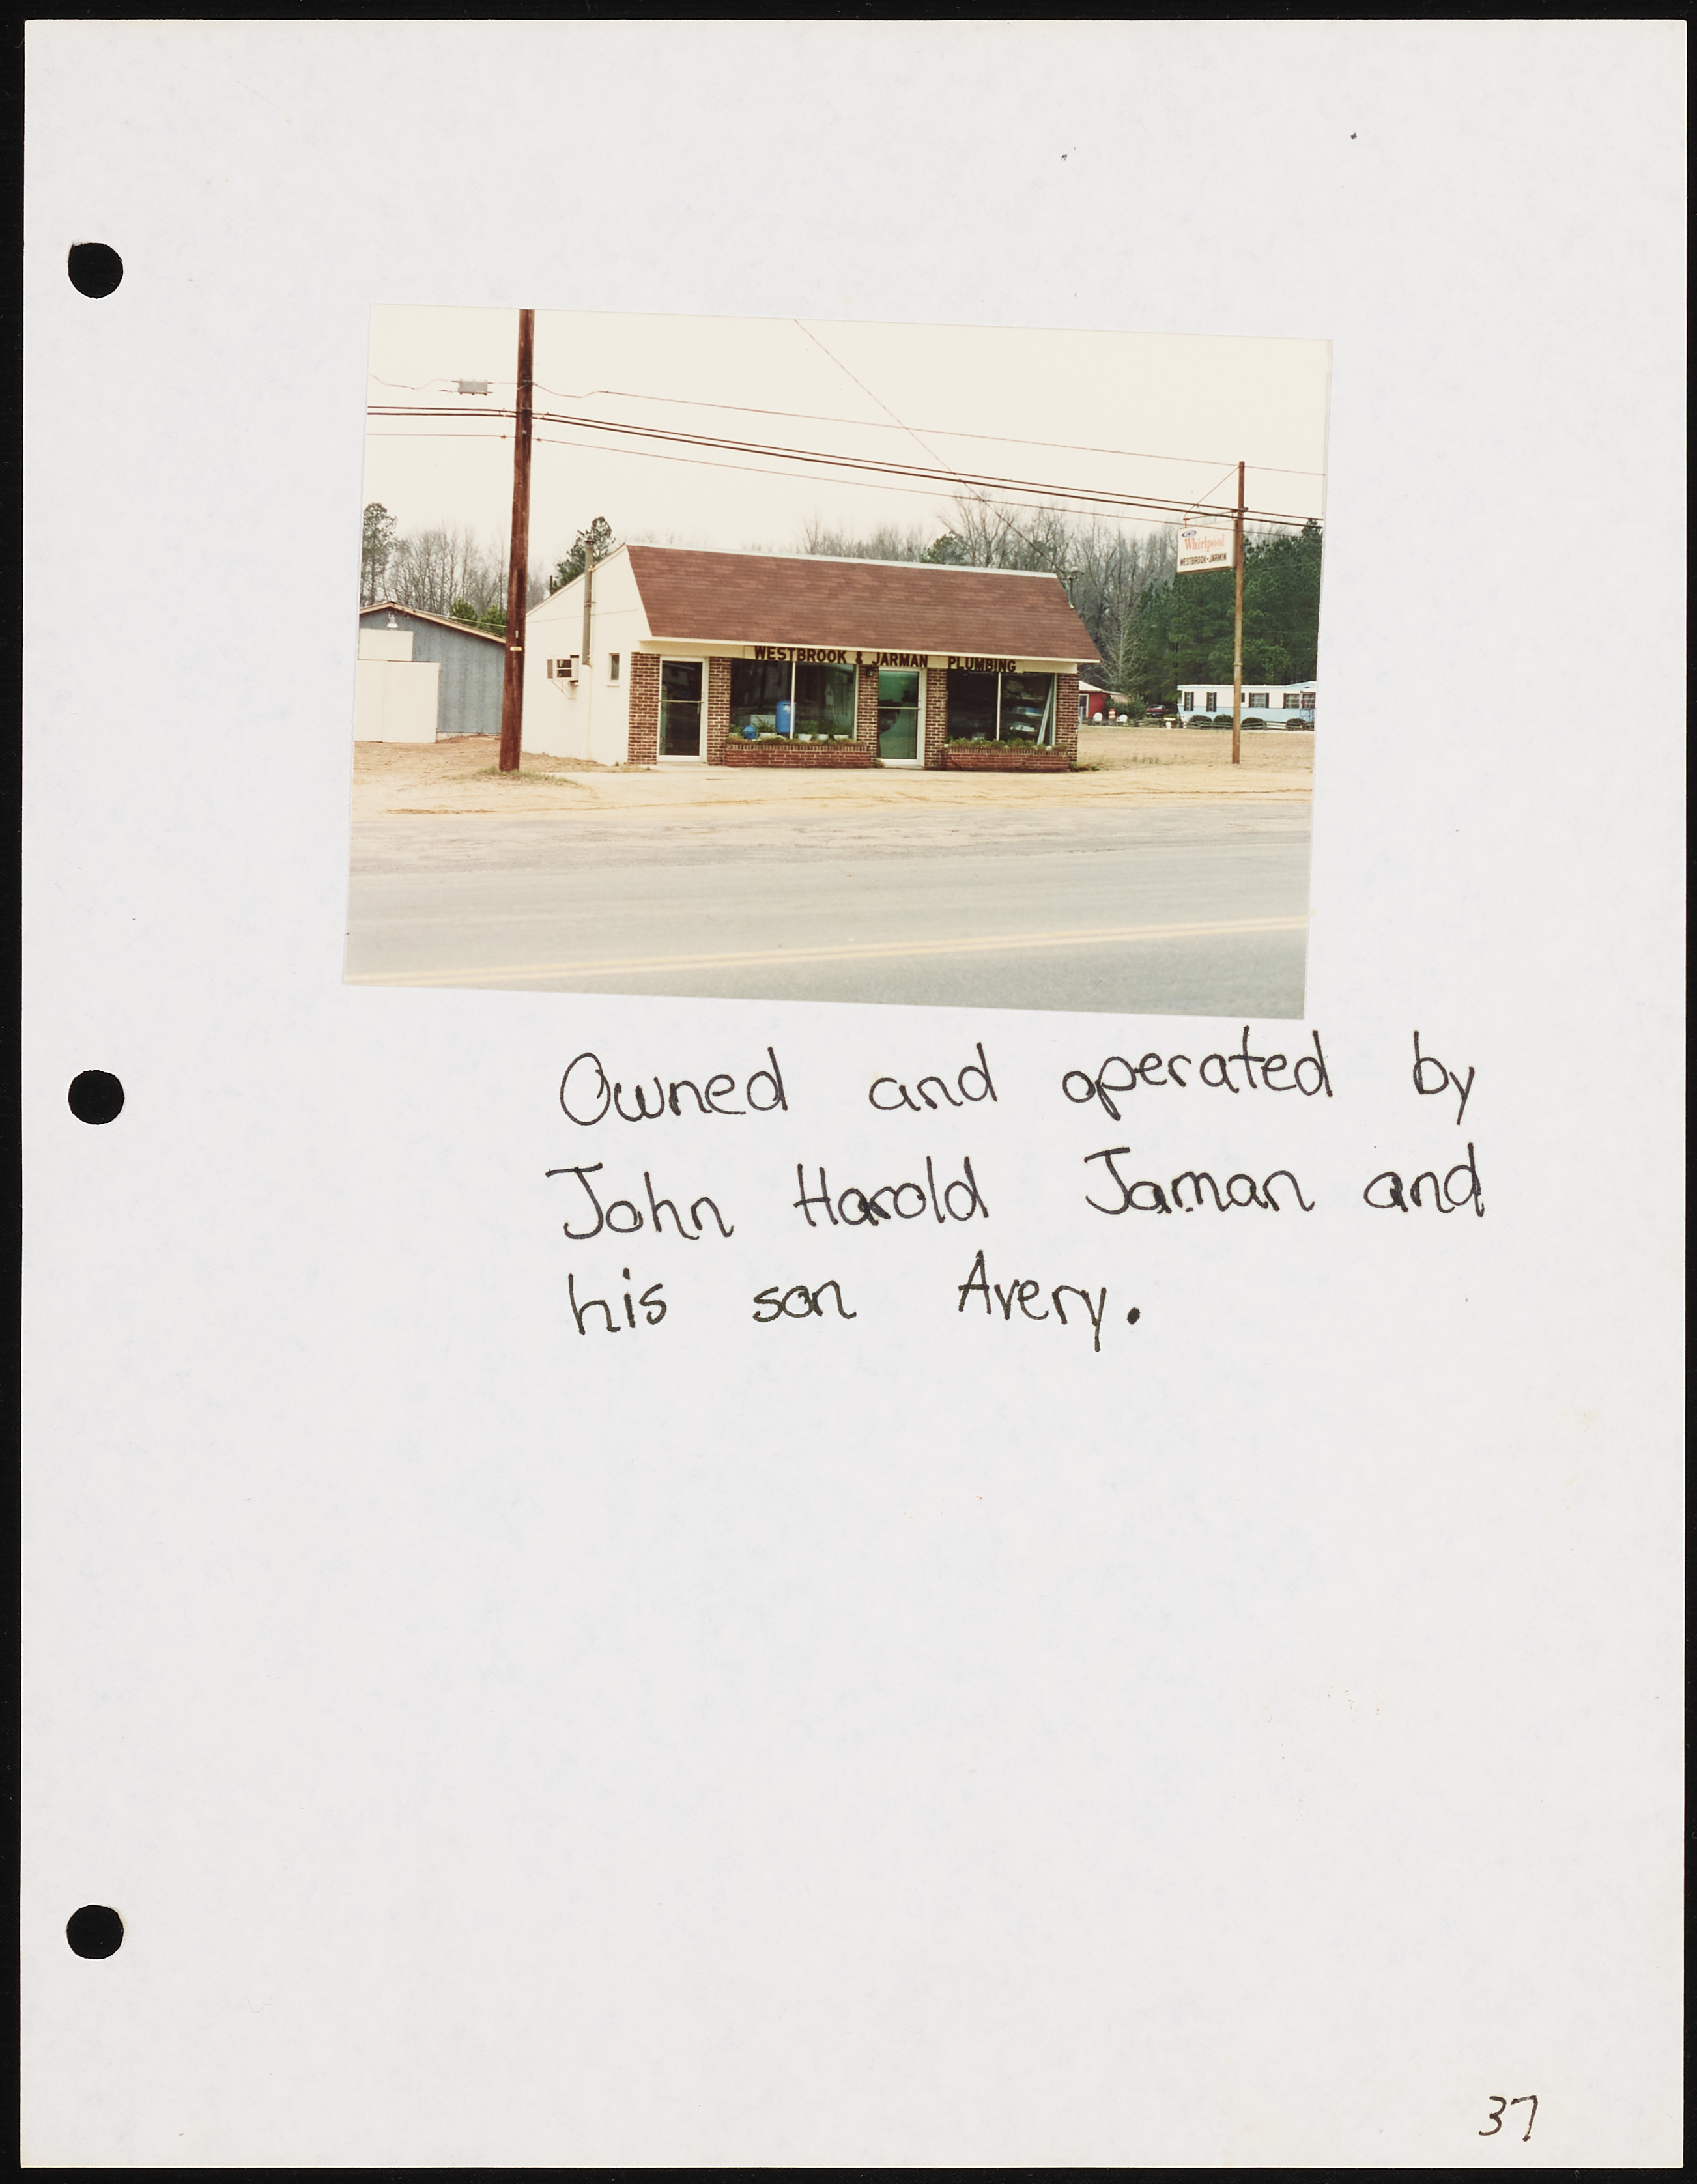 Whirlpool
WESTBROOK-JARMIN
WESTBROOK & JARMAN PLUMBING
Owned and operated by
John Harold Jarman and
his son Avery.
37